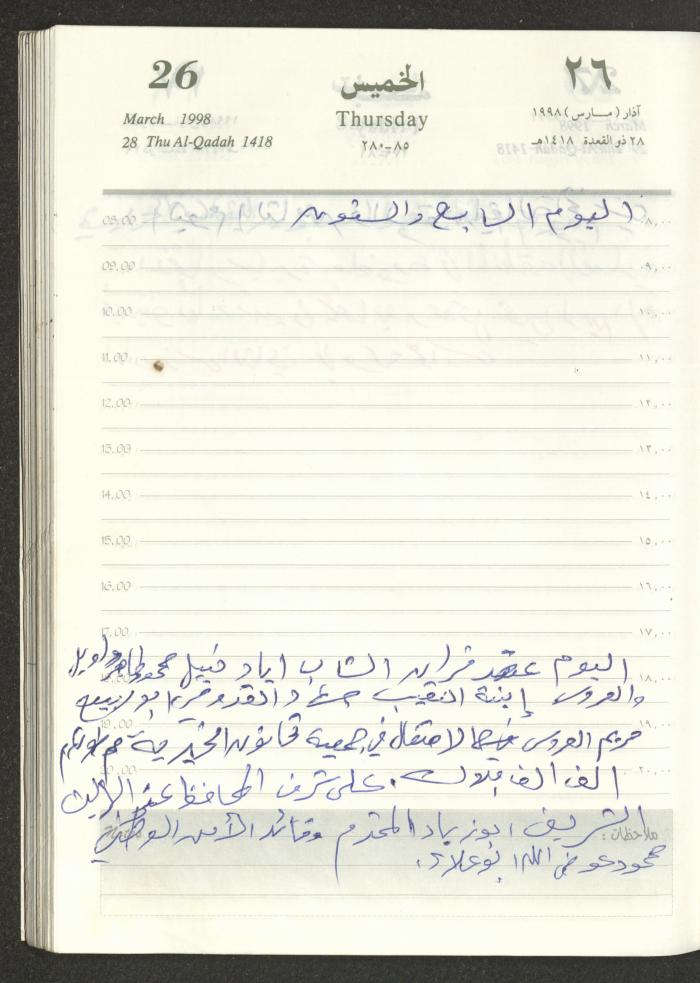 26 الخميس ٢٦
March 1998 Thursday آذار (مارس) ١٩٩٨
28 Thu Al-Qadah 1418 ٢٨٠-٨٥ ٢٨ ذو القعدة ١٤١٨هـ
اليوم السابع والستون
08.00 ٨,٠٠
09.00 ٩,٠٠
10.00 ١٠,٠٠
11.00 ١١,٠٠
12.00 ١٢,٠٠
13.00 ١٣,٠٠
14.00 ١٤,٠٠
15.00 ١٥,٠٠
16.00 ١٦,٠٠
17.00 ١٧,٠٠
اليوم عقد قران الشاب اياد نبيل محمود طاهر
18.00 ١٨,٠٠
والعروس إبنة النقيب ابو ربيع
19.00 ١٩,٠٠
مريم العروس الاحتفال في جمعية قانون الخيرية
20.00 ٢٠,٠٠
الف الف مبروك. على شرف المحافظ عز الدين
ملاحظات :
الشريف ابو زياد المحترم وقائد الأمن الوطني
محمود عوض الله ابو علاء.